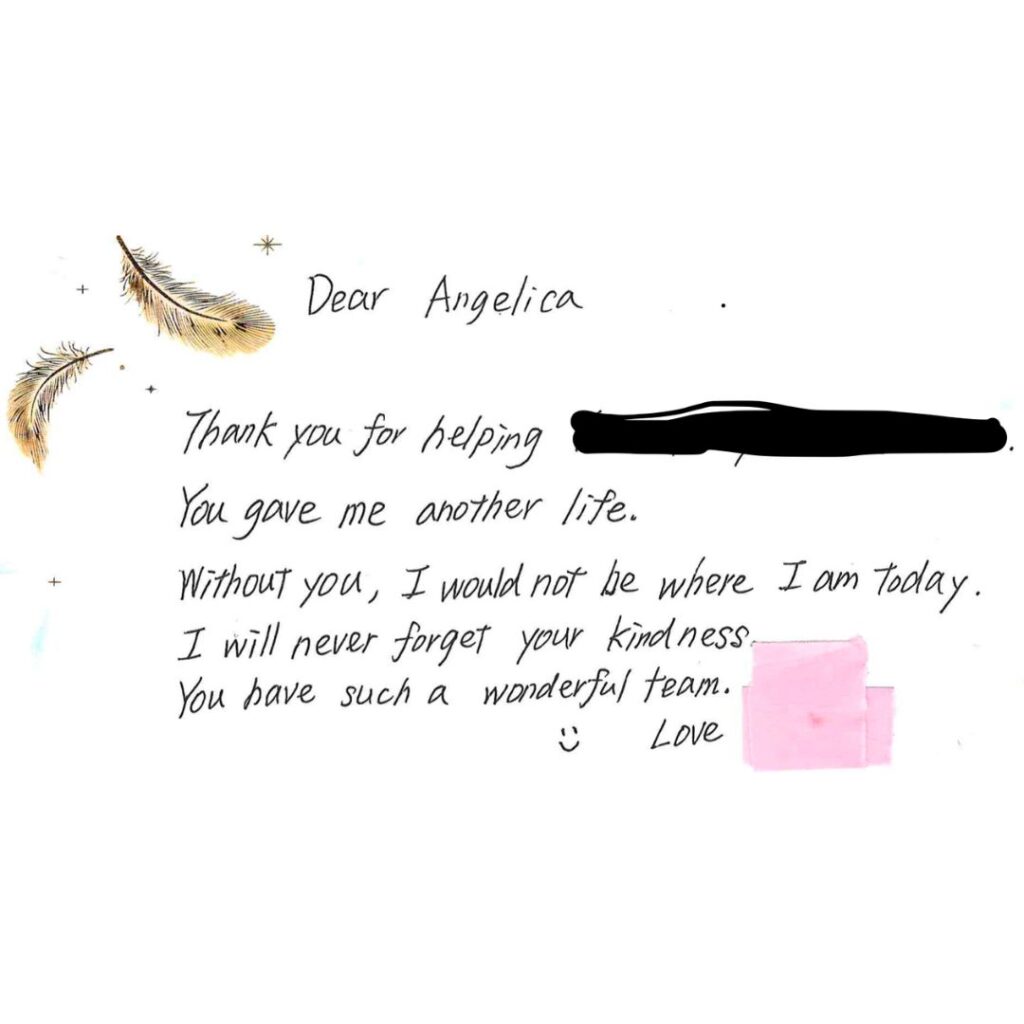 Dear Angelica
Thank you for helping
You gave me another life.
Without you, I would not be where I am today.
I will never forget your kindness.
You have such a wonderful team.
Love